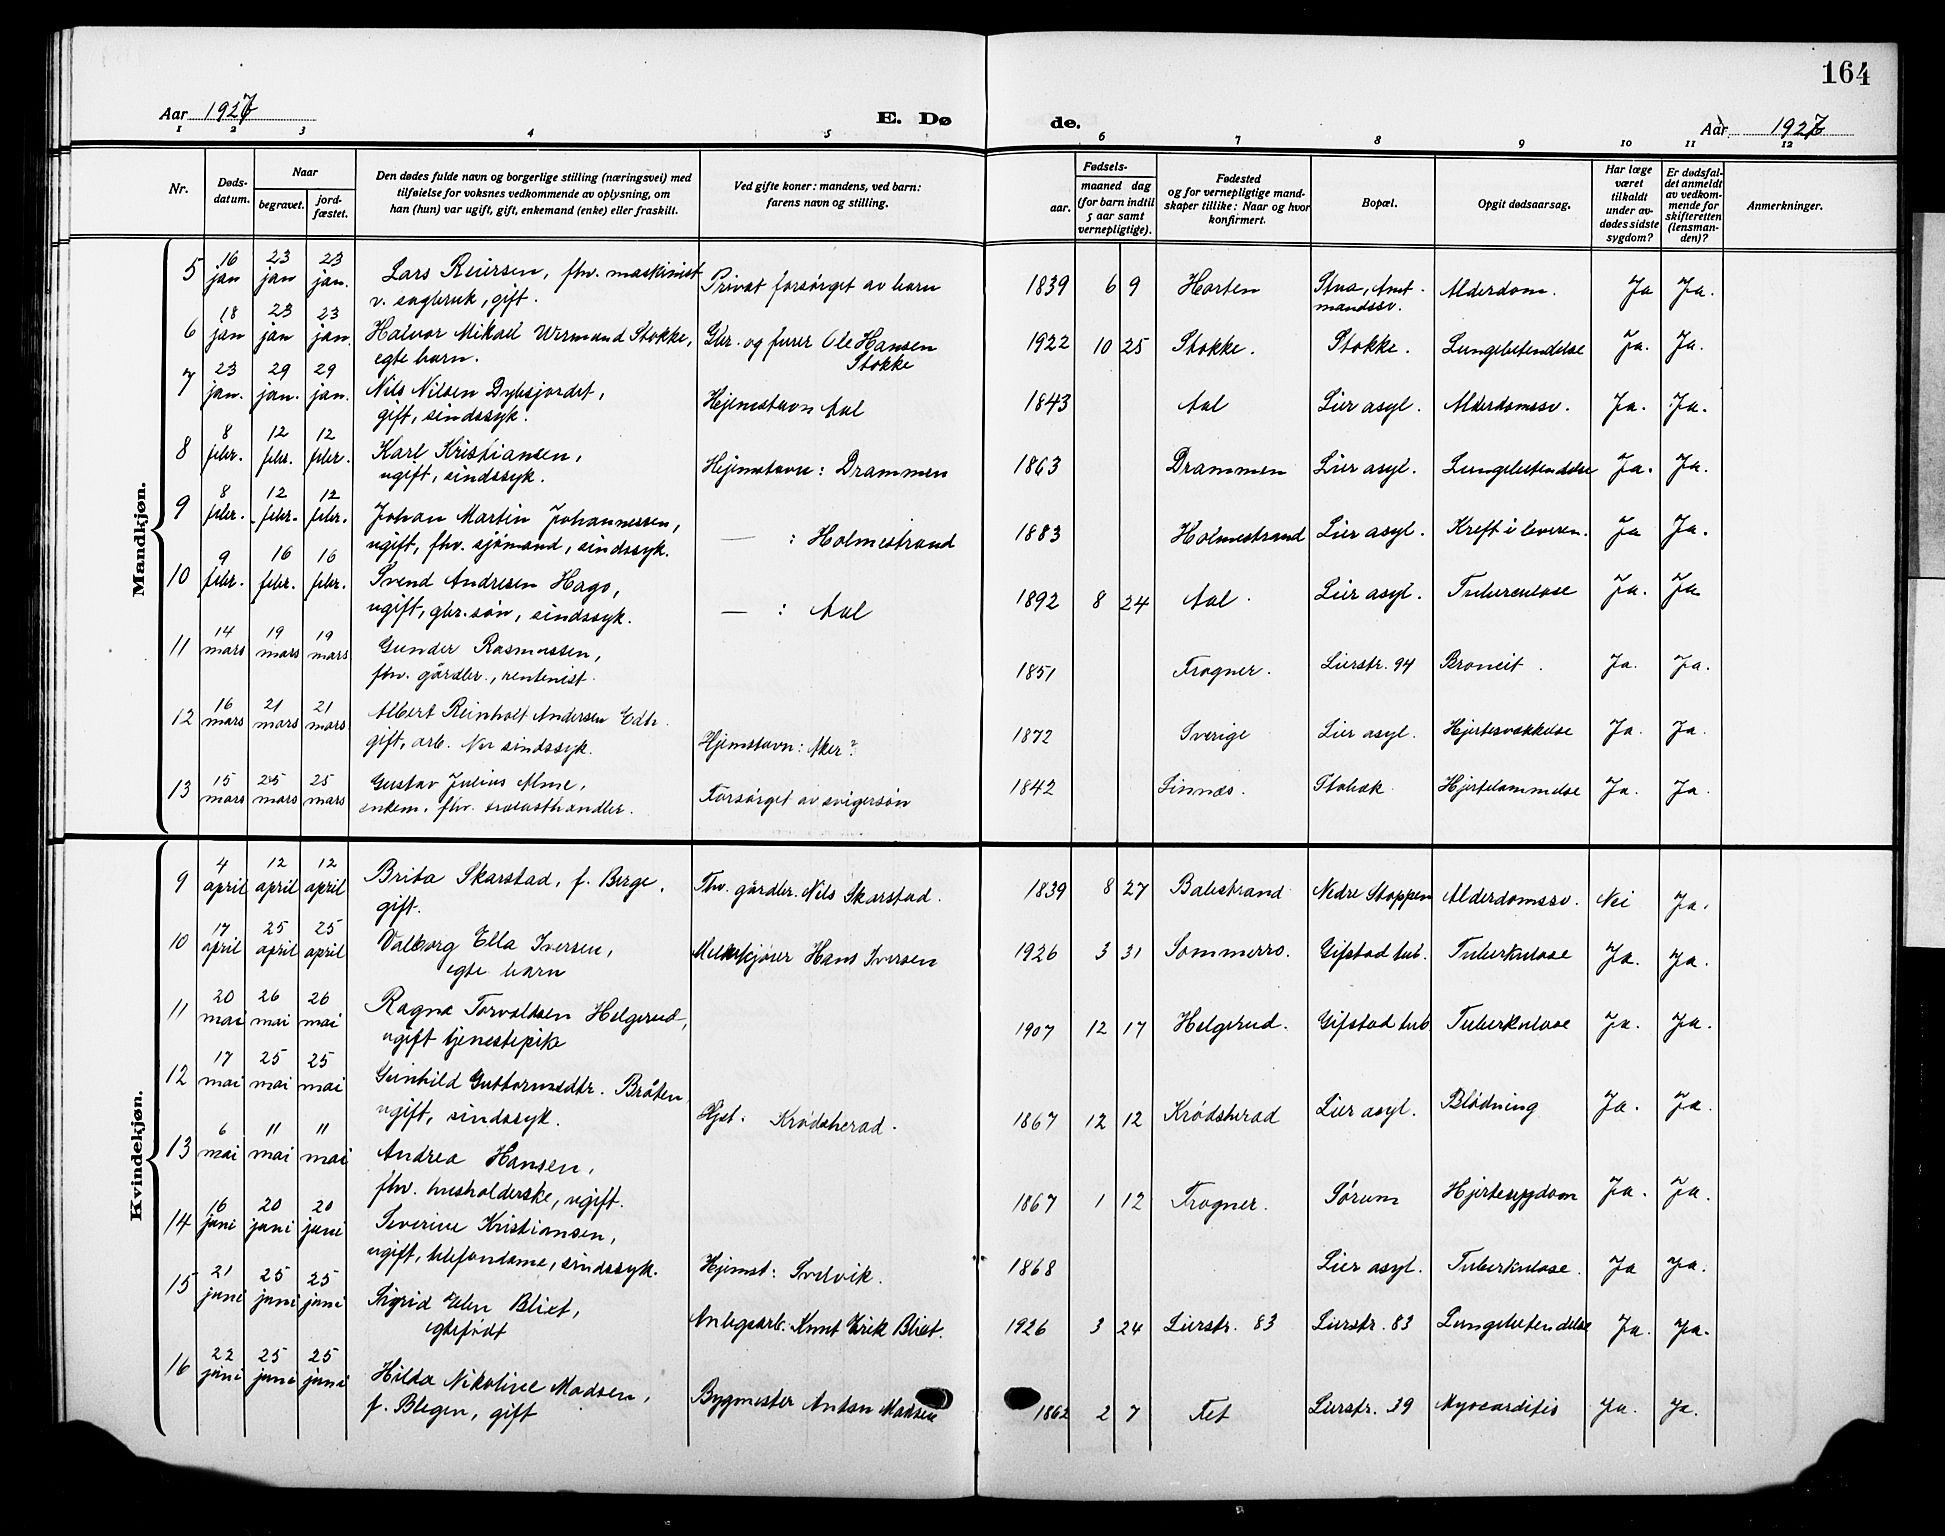 164
Aar 1927
E. Døde.
Aar 1927
1 2 3 4 5 6 7 8 9 10 11 12
Nr.
Døds-datum.
Naar
begravet.
jord-fæstet.
Den dødes fulde navn og borgerlige stilling (næringsvei) med
tilføielse for voksnes vedkommende av oplysning, om
han (hun) var ugift, gift, enkemand (enke) eller fraskilt.
Ved gifte koner: mandens, ved barn:
farens navn og stilling.
Fødsels-
aar.
maaned dag
(for barn indtil
5 aar samt
vernepligtige).
Fødested
og for vernepligtige mand-
skaper tillike: Naar og hvor
konfirmert.
Bopæl.
Opgit dødsaarsag.
Har læge
været
tilkaldt
under av-
dødes sidste
sygdom?
Er dødsfal-
det anmeldt
av vedkom-
mende for
skifteretten
(lensman-
den)?
Anmerkninger.
Mandkjøn.
5 16 jan 23 jan 23 jan. Lars Reiersen, fhv. maskinist Privat forsørget av barn 1839 6 9 Horten Amt- Alderdom. Ja Ja.
v. sagbruk, gift. mandssv.
6 18 jan 23 jan 23 jan. Halvor Mikael Wermund Stokke, Gbr. og furer Ole Hansen 1922 10 25 Stokke. Stokke. Lungebetendelse Ja. Ja.
egte barn. Stokke
7 23 jan. 29 jan. 29 jan. Nils Nilsen Dybsjordet, Hjemstavn Aal 1843 Aal Lier asyl. Alderdomssv. Ja. Ja.
gift, sindssyk.
8 8 febr. 12 febr. 12 febr. Karl Kristiansen, Hjemstavn: Drammen 1863 Drammen Lier asyl. Lungebetendelse Ja. Ja.
ugift, sindssyk.
9 8 febr. 12 febr. 12 febr. Johan Martin Johannessen, — : Holmestrand 1883 Holmestrand Lier asyl. Kreft i leveren. Ja Ja.
ugift, fhv. sjömand, sindssyk.
10 9 febr. 16 febr. 16 febr. Svend Andresen Hago, — : Aal 1892 8 24 Aal. Lier asyl. Tuberculose Ja. Ja
ugift, gbr. søn, sindssyk.
11 14 mars 19 mars 19 mars Gunder Rasmussen, 1851 Frogner. Lierstr. 94 Broncit. Ja. Ja.
fhv. gårdbr., rentenist.
12 16 mars 21 mars 21 mars Albert Reinholt Andersen Hjemstavn: Aker? 1872 Sverige Lier asyl. Hjertesvakkelse Ja. Ja.
gift, arb. sindssyk.
13 15 mars 25 mars 25 mars Gustav Julius Alme, Forsørget av svigersøn 1842 Stabæk. Hjertelammelse Ja. Ja.
enkem. fhv. trælasthandler.
Kvindekjøn.
9 4 april 12 april 12 april Brita Skarstad, f. Berge, Fhv. gårdbr. Nils Skarstad. 1839 8 27 Balestrand Nedre Stoppen Alderdomssv. Nei Ja.
gift.
10 17 april 25 april 25 april Valborg Ella Iversen, Melkekjører Hans Iversen 1926 3 31 Sommerro. Gifstad tub. Tuberkulose Ja. Ja.
egte barn
11 20 mai 26 mai 26 mai Ragna Torvaldsen Helgerud, 1907 12 17 Helgerud. Gifstad tub Tuberkulose Ja. Ja.
ugift tjenestepike
12 17 mai 25 mai 25 mai Gunhild Guttormsdtr. Bråten, Hjst. Krødsherad. 1867 12 12 Krødsherad Lier asyl. Blødning Ja. Ja.
ugift, sindssyk.
13 6 mai 11 mai 11 mai Andrea Hansen, 1867 1 12 Frogner. Sørum Hjertesygdom Ja. Ja.
fhv. husholderske, ugift.
14 16 juni 20 juni 20 juni Severine Kristiansen, Hjemst: Svelvik. 1868 Lier asyl. Tuberkulose. Ja Ja.
ugift, telefondame, sindssyk.
15 21 juni 25 juni 25 juni Sigrid Elen Bliet, Anlegsarb. Knut Erik Bliet. 1926 3 24 Lierstr. 83 Lierstr. 83 Lungebetendelse Ja. Ja.
egtefødt
16 22 juni 25 juni 25 juni Hilda Nikoline Madsen, Bygmester Anton Madsen 1862 2 7 Fet Lierstr. 39 Myocarditis Ja. Ja.
f. Blegen, gift